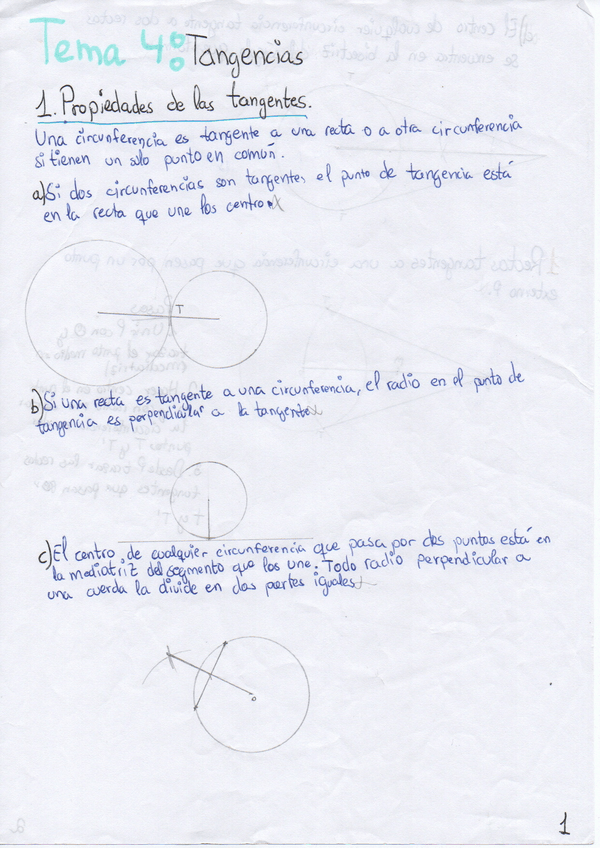 Tema 4: Tangencias
1. Propiedades de las tangentes.
Una circunferencia es tangente a una recta o a otra circunferencia
si tienen un solo punto en común.
a) Si dos circunferencias son tangentes el punto de tangencia está
en la recta que une los centros
T
b) Si una recta es tangente a una circunferencia, el radio en el punto de
tangencia es perpendicular a la tangente
c) El centro de cualquier circunferencia que pasa por dos puntos está en
la mediatriz del segmento que los une. Todo radio perpendicular a
una cuerda la divide en dos partes iguales
o
1